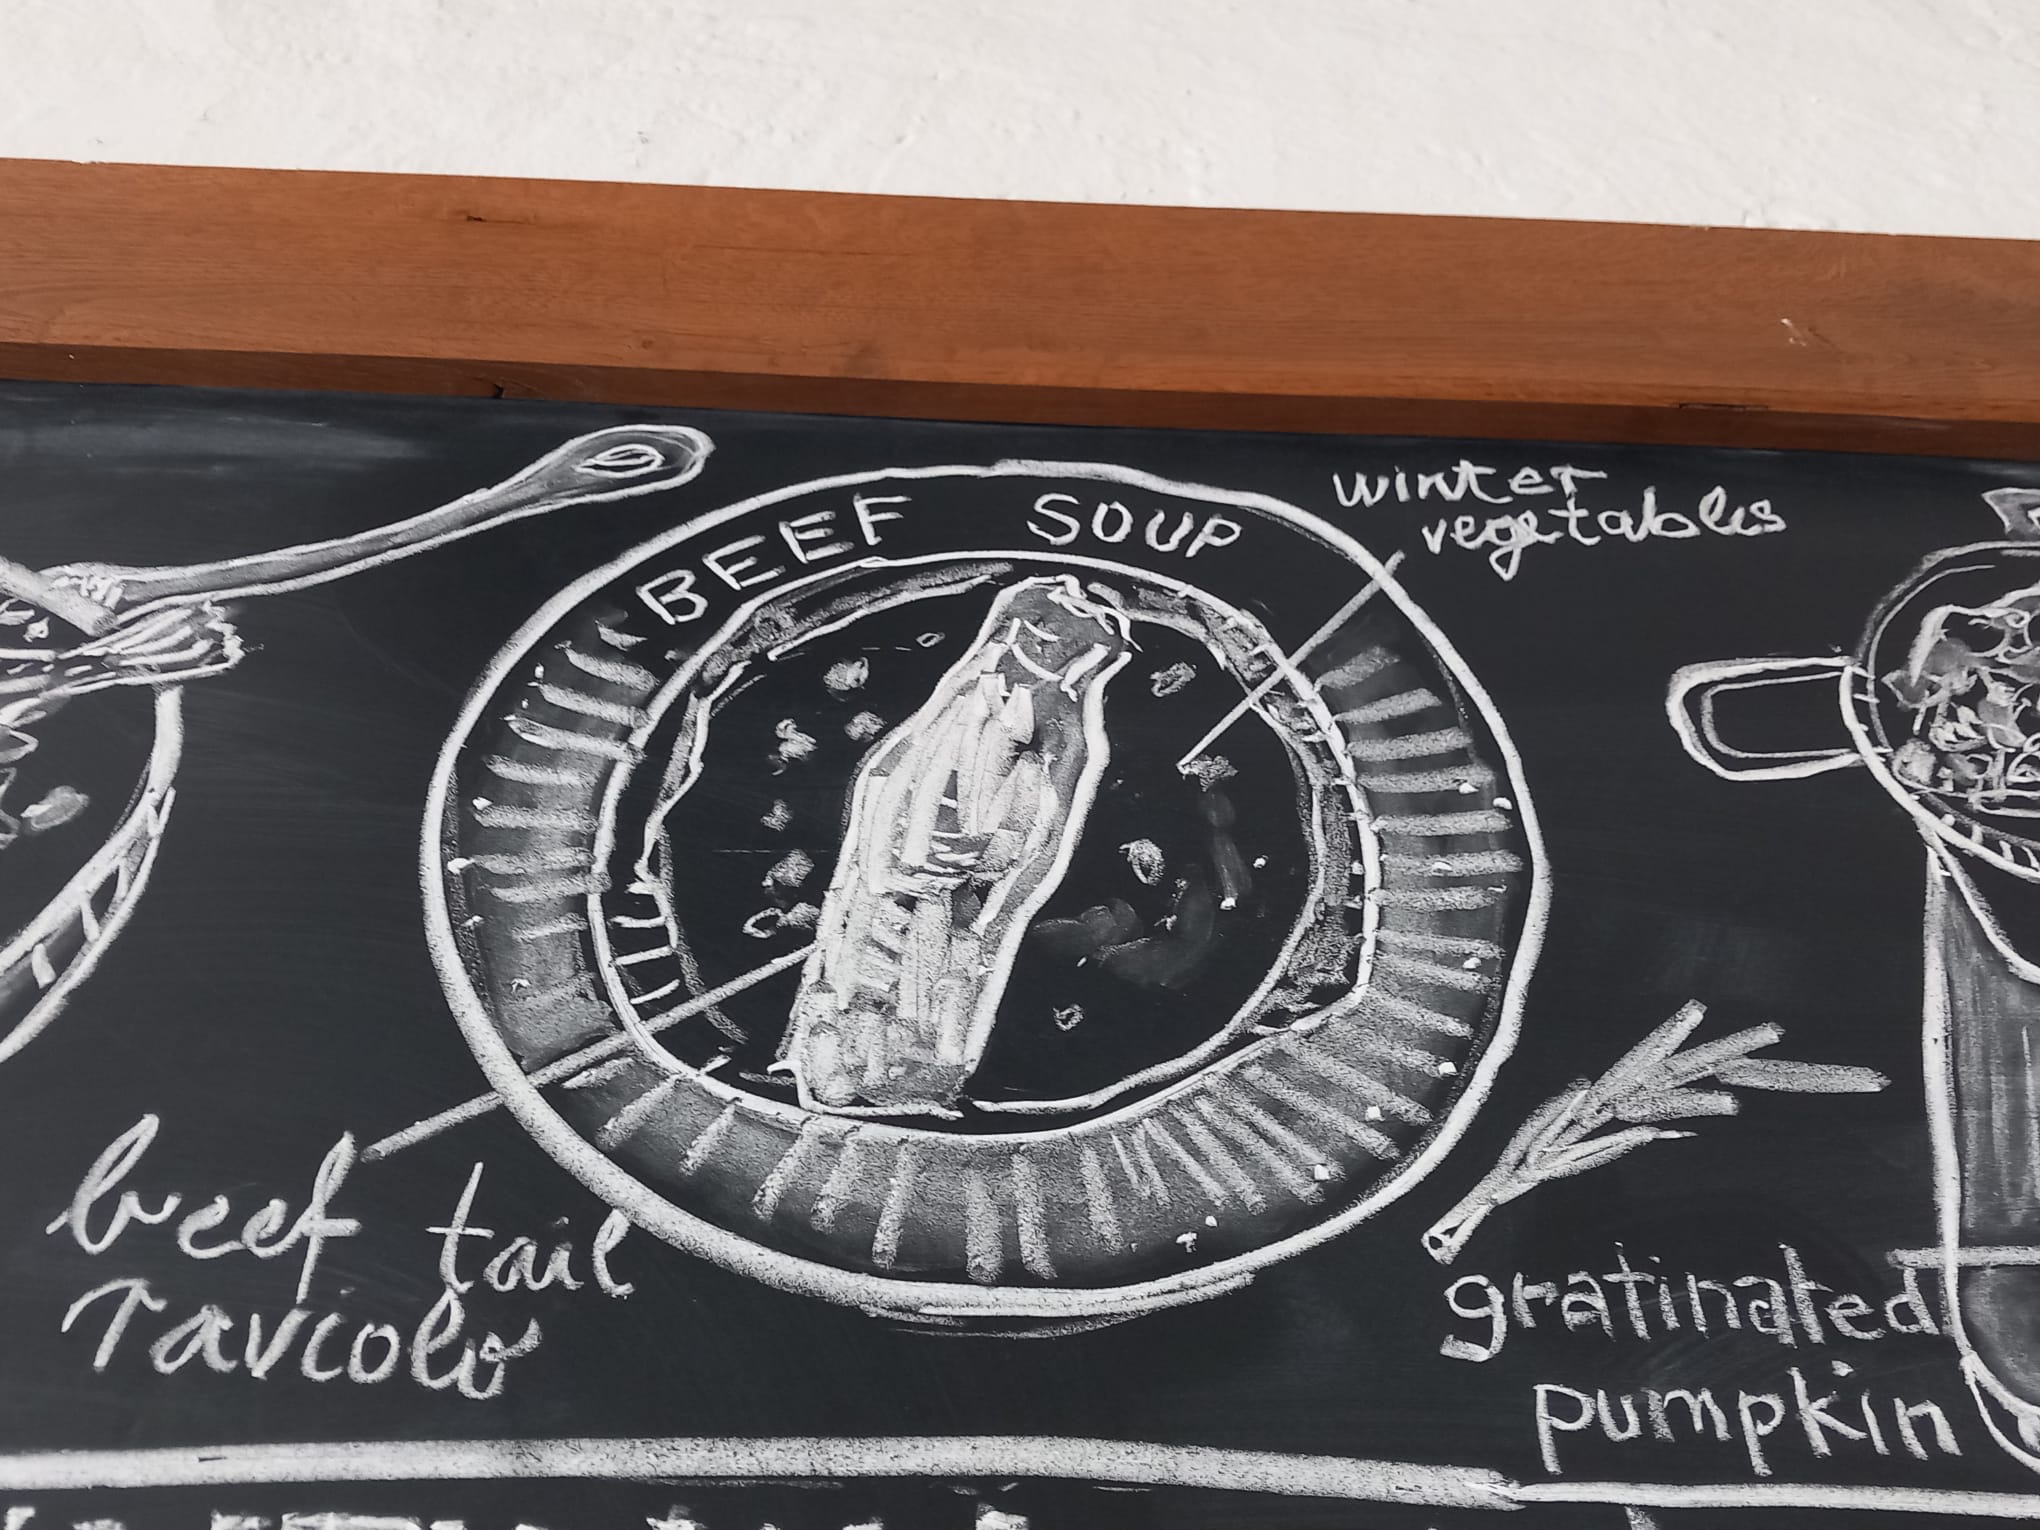 BEEF SOUP
winter
vegetables
beef tail
raviolo
gratinated
pumpkin